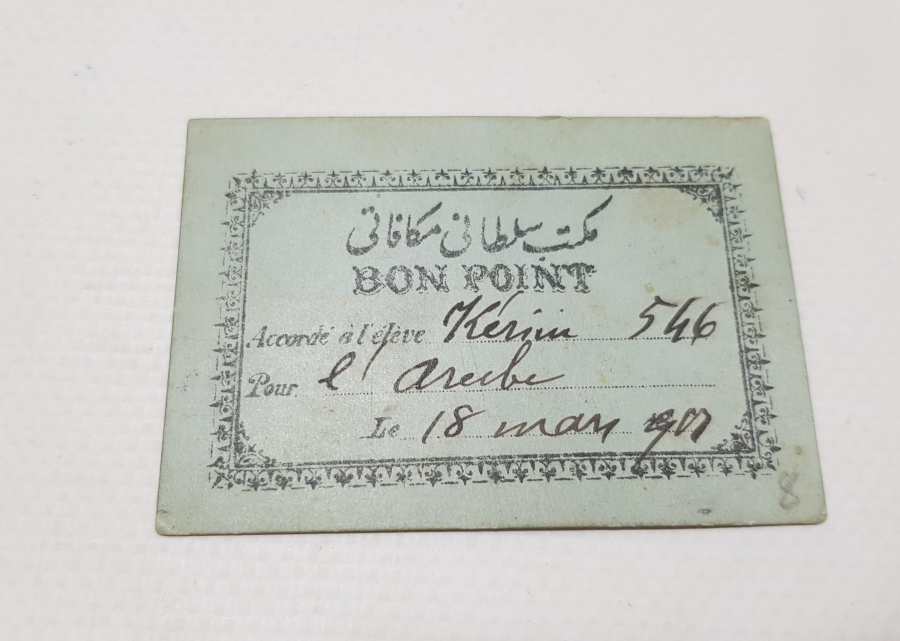 مكتب سلطانی مكافاتی
BON POINT
Accordé à l'élève Kérim 546
Pour l' Arabe
Le 18 mars
8